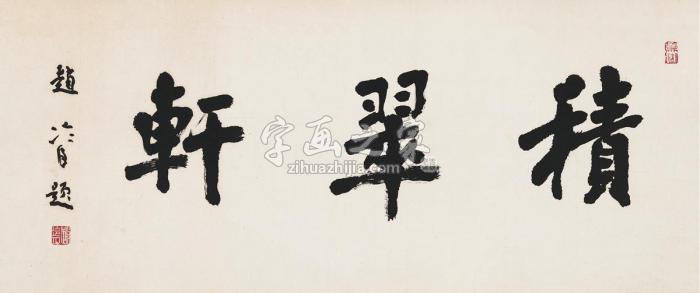 積翠軒
趙冷月題
字画之家
www.zihuazhijia.com